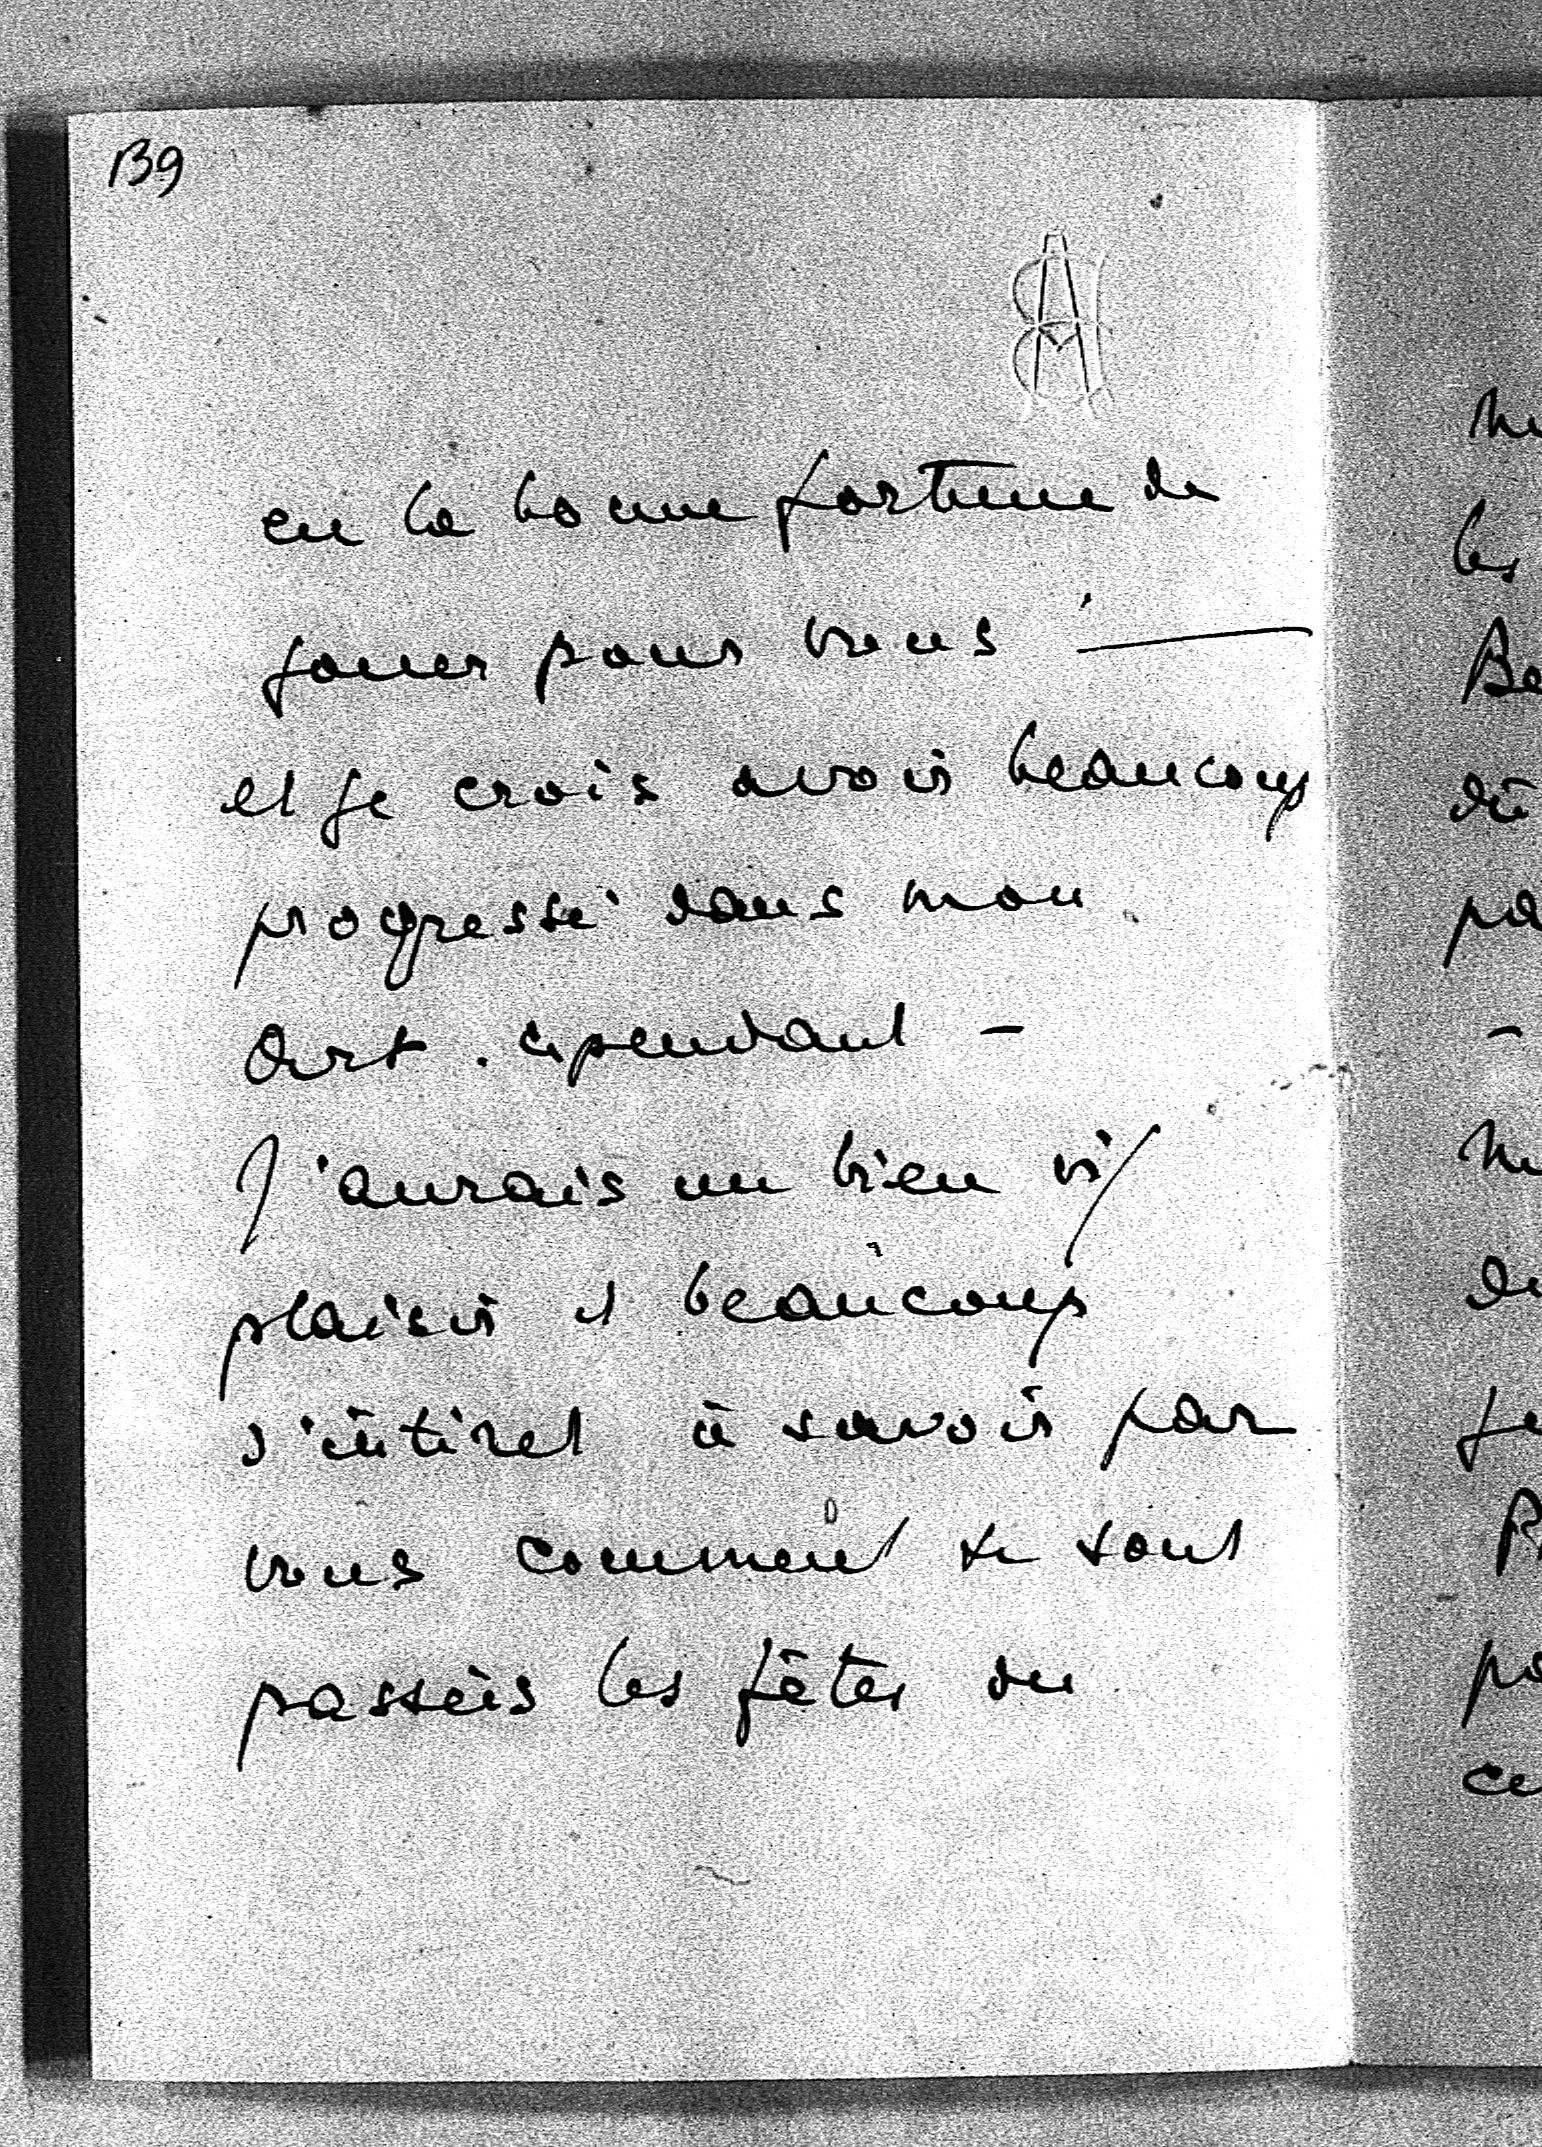 139
eu la bonne fortune de
jouer pour vous —
et je crois avoir beaucoup
progressé dans mon
art. cependant -
J'aurais un bien vif
plaisir et beaucoup
d'intéret à savoir par
vous comment se sont
passées les fêtes du
les
Be
pa
-
po
ce